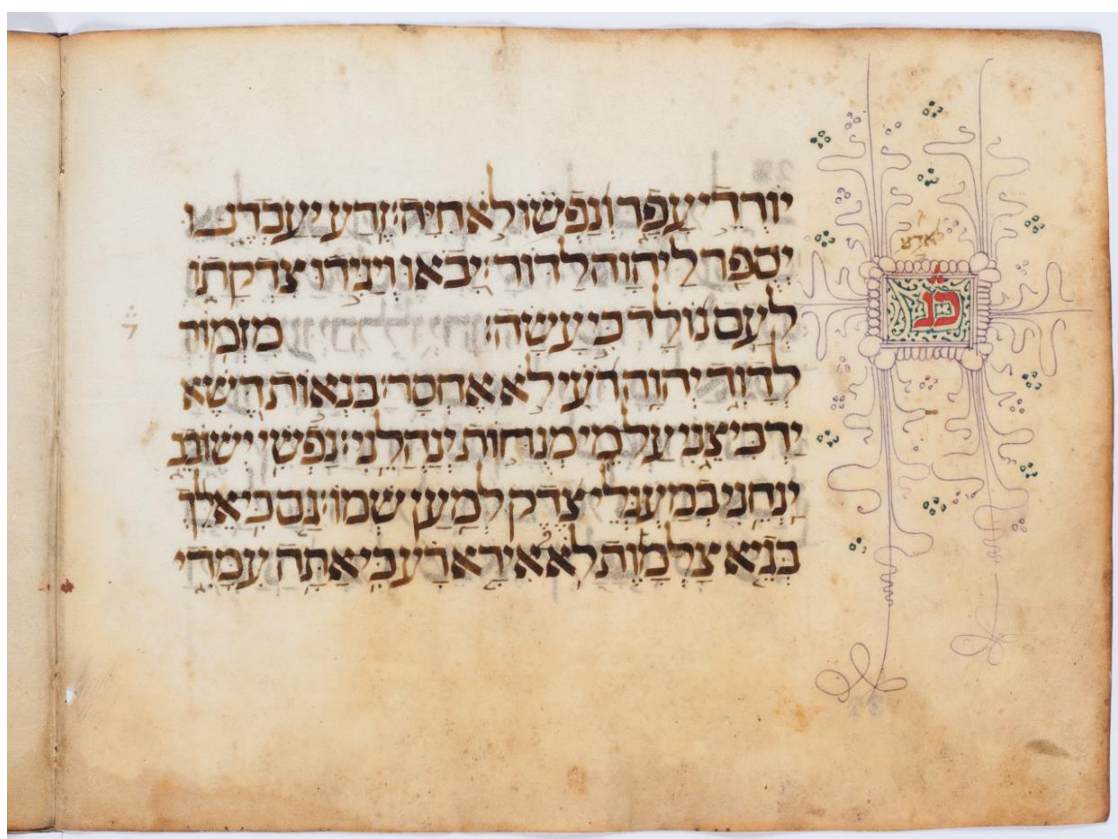 יוֹרְדֵי עָפָר וְנַפְשׁוֹ לֹא חִיָּה׃ זֶרַע יַעַבְדֶנּוּ
יְסֻפַּר לַיהוָה לַדּוֹר׃ יָבֹאוּ וְיַגִּידוּ צִדְקָתוֹ
לְעַם נוֹלָד כִּי עָשָׂה׃ מִזְמוֹר
לְדָוִד יְהוָה רֹעִי לֹא אֶחְסָר׃ בִּנְאוֹת דֶּשֶׁא
יַרְבִּיצֵנִי עַל מֵי מְנֻחוֹת יְנַהֲלֵנִי׃ נַפְשִׁי יְשׁוֹבֵב
יַנְחֵנִי בְמַעְגְּלֵי צֶדֶק לְמַעַן שְׁמוֹ׃ גַּם כִּי אֵלֵךְ
בְּגֵיא צַלְמָוֶת לֹא אִירָא רָע כִּי אַתָּה עִמָּדִי
כג